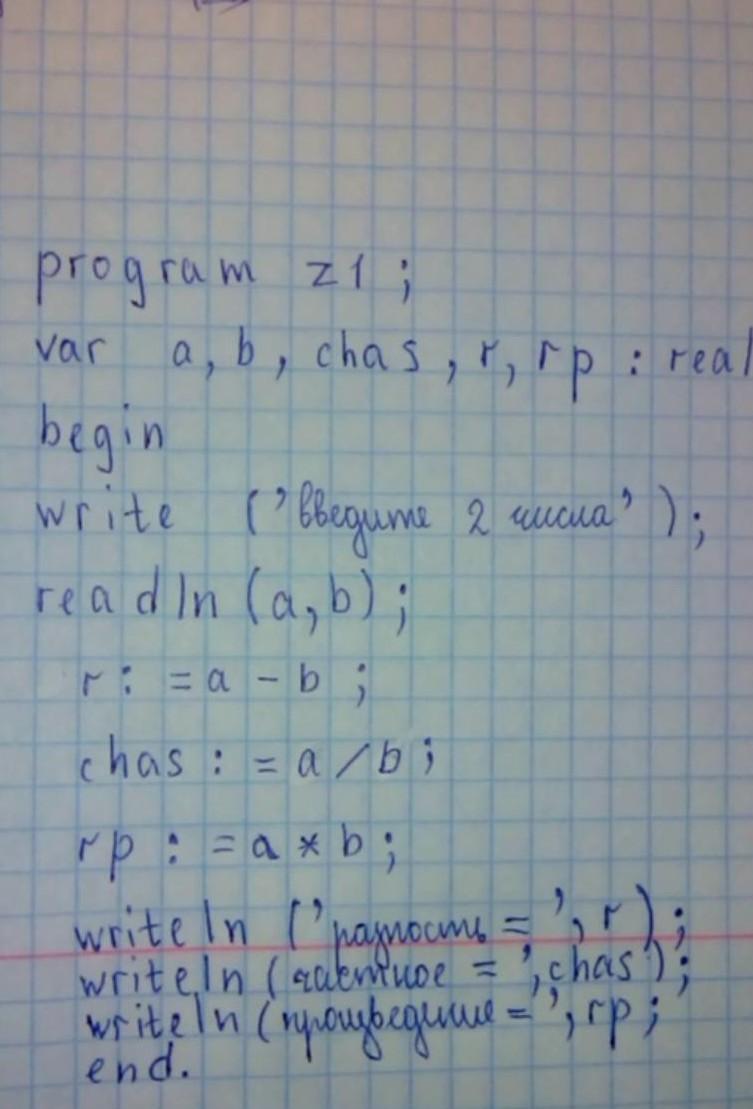 program z1 ;
var a, b, chas, r, rp : real
begin
write ('введите 2 числа');
readln (a,b);
r: =a - b ;
chas : = a /b;
rp : =a * b ;
writeln ('разность = ', r);
writeln (частное = ', chas);
writeln (произведение = ', rp;
end.